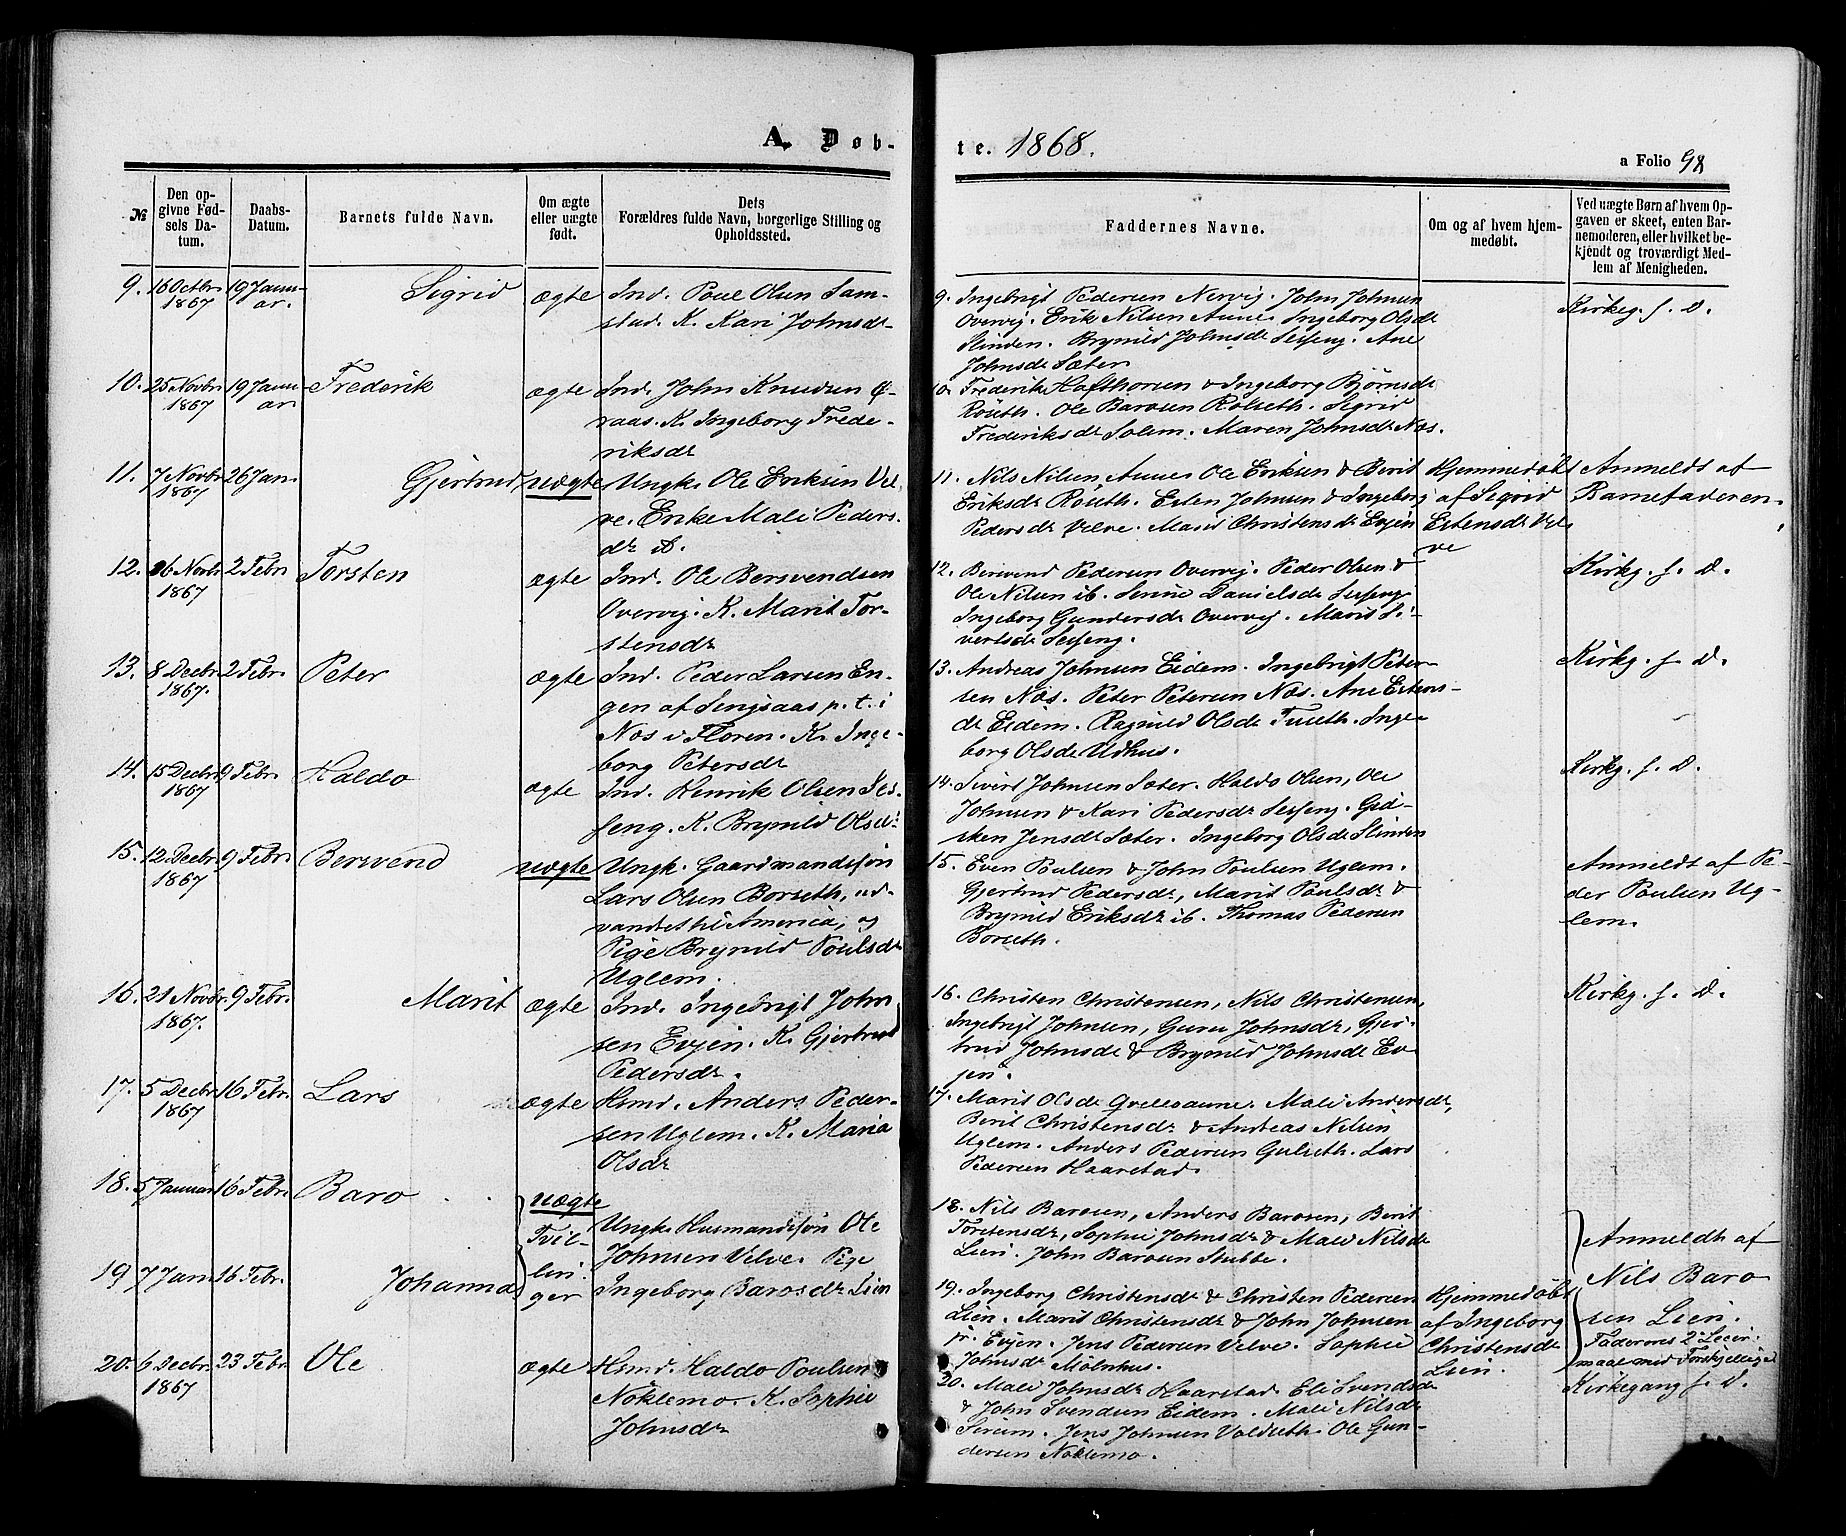 A. Døb-
te. 1868.
a Folio 98
№
Den op-
givne Fød-
sels Da-
tum.
Daabs-
Datum.
Barnets fulde Navn.
Om ægte
eller uægte
født.
Dets
Forældres fulde Navn, borgerlige Stilling og
Opholdssted.
Faddernes Navne.
Om og af hvem hjem-
medøbt.
Ved uægte Børn af hvem Op-
gaven er skeet, enten Bar-
nemoderen, eller hvilket be-
kjendt og troværdigt Med-
lem af Menigheden.
9. 16 Octbr 1867
19 Janu-
ar.
Sigrid
ægte
Ind. Poul Olsen Sam-
stad. K. Kari Johnsdr
9. Ingebrigt Pedersen Nervig. John Johnsen
Overvig. Erik Nilsen Aune. Ingeborg Olsdr
Slinden. Brynild Johnsdr Sesseng. Ane
Johnsdr Sæter
Kirkeg. f. D.
10. 25 Novbr 1867
19 Janu-
ar
Frederik
ægte
Ind. John Knudsen Ø-
raas. K. Ingeborg Frede-
riksdr
10. Frederik Hafthorsen & Ingeborg Bjørnsdr
Røseth. Ole Barosen Rolseth. Sigrid
Frederiksdr Solem. Maren Johnsdr Næs.
11. 7 Novbr 1867
26 Jan.
Gjertrud
uægte
Ungk. Ole Eriksen Vel-
ve. Enke Mali Peders-
dr ib.
11. Nils Nilsen Aune. Ole Eriksen & Berit
Eriksdr Røseth. Esten Johnsen & Ingeborg
Pedersdr Velve. Marit Christensdr Evjen
Hjemmedøbt
af Sigrid
Estensdr Vel-
ve
Anmeldt af
Barnefaderen.
12. 26 Novbr 1867
2 Febr
Torsten
ægte
Ind. Ole Bersvendsen
Overvig. K. Marit Tor-
stensdr
12. Bersvend Pedersen Overvig. Peder Olsen &
Ole Nilsen ib. Serine Danielsdr Sesseng.
Ingeborg Gundersdr Overvig. Marit Si-
vertsdr Sesseng.
Kirkg. f. D.
13. 8 Decbr 1867.
2 Febr.
Peter
ægte
Ind. Peder Larsen En-
gen af Singsaas p. t. i
Næs i Floren. K. Inge-
borg Petersdr
13. Andreas Johnsen Eidem. Ingebrigt Peter-
sen Næs. Peter Petersen Næs. Ane Estens-
dr Eidem. Ragnild Olsdr Fuseth. Inge-
borg Olsdr Udhus.
Kirkg. f. D.
14. 15 Decbr 1867
9 Febr.
Haldo
ægte
Ind. Henrik Olsen Ses-
seng. K. Brynild Olsdr
14. Sivert Johnsen Sæter. Haldo Olsen, Ole
Johnsen & Kari Pedersdr Sesseng. Gid-
sken Jensdr Sæter. Ingeborg Olsdr Slinden
Kirkg. f. D.
15. 12. Decbr 1867
9 Febr.
Bersvend
uægte
Ungk. Gaardmandssøn
Lars Olsen Borseth, ud-
vandret til America, og
Pige Brynild Poulsdr
Uglem.
15. Even Poulsen & John Poulsen Uglem.
Gjertrud Pedersdr, Marit Poulsdr &
Brynild Eriksdr ib. Thomas Pedersen
Borseth.
Anmeldt af Pe-
der Poulsen Ug-
lem.
16. 21 Novbr 1867.
9 Febr.
Marit
ægte
Ind. Ingebrigt John-
sen Evjen. K. Gjertrud
Pedersdr.
16. Christen Christensen, Nils Christensen,
Ingebrigt Johnsen, Guru Johnsdr, Gjer-
trud Johnsdr & Brynild Johnsdr Ev-
jen.
Kirkg. f. D.
17. 5 Decbr 1867
16 Febr.
Lars
ægte
Hsmd. Anders Peder-
sen Uglem. K. Maria
Olsdr
17. Marit Olsdr Qvelloaune. Mali Andersdr,
Berit Christensdr & Andreas Nilsen
Uglem. Anders Pedersen Gulseth. Lars
Pedersen Haarstad.
18. 5 Januar
16 Febr.
Baro
uægte
Tvil-
lin-
ger
Ungk. Husmandssøn Ole
Johnsen Velve. Pige
Ingeborg Barosdr Lien
18. Nils Barosen, Anders Barosen, Berit
Torstensdr, Sophie Johnsdr & Mali Nilsdr
Lien. John Barosen Stubbe.
Anmeldt af
Nils Baro-
sen Lien.
Faderens 2det Leier-
maal med Forskjellige
19 7 Jan
16 Febr.
Johanna
19. Ingeborg Christensdr & Christen Pedersen
Lien. Marit Christensdr & John Johnsen
jr. Evjen. Jens Pedersen Velve. Sophie
Johnsdr Mølnhus.
Hjemmedøbt
af Ingeborg
Christensdr
Lien.
20. 6 Decbr 1867
23 Febr.
Ole
ægte
Hsmd. Haldo Poulsen
Nøklemo. K. Sophie
Johnsdr
20. Mali Johnsdr Haarstad. Eli Svendsdr
& John Svendsen Eidem. Mali Nilsdr
Serum. Jens Johnsen Valseth. Ole Gun-
dersen Nøklemo.
Kirkegang f. D.